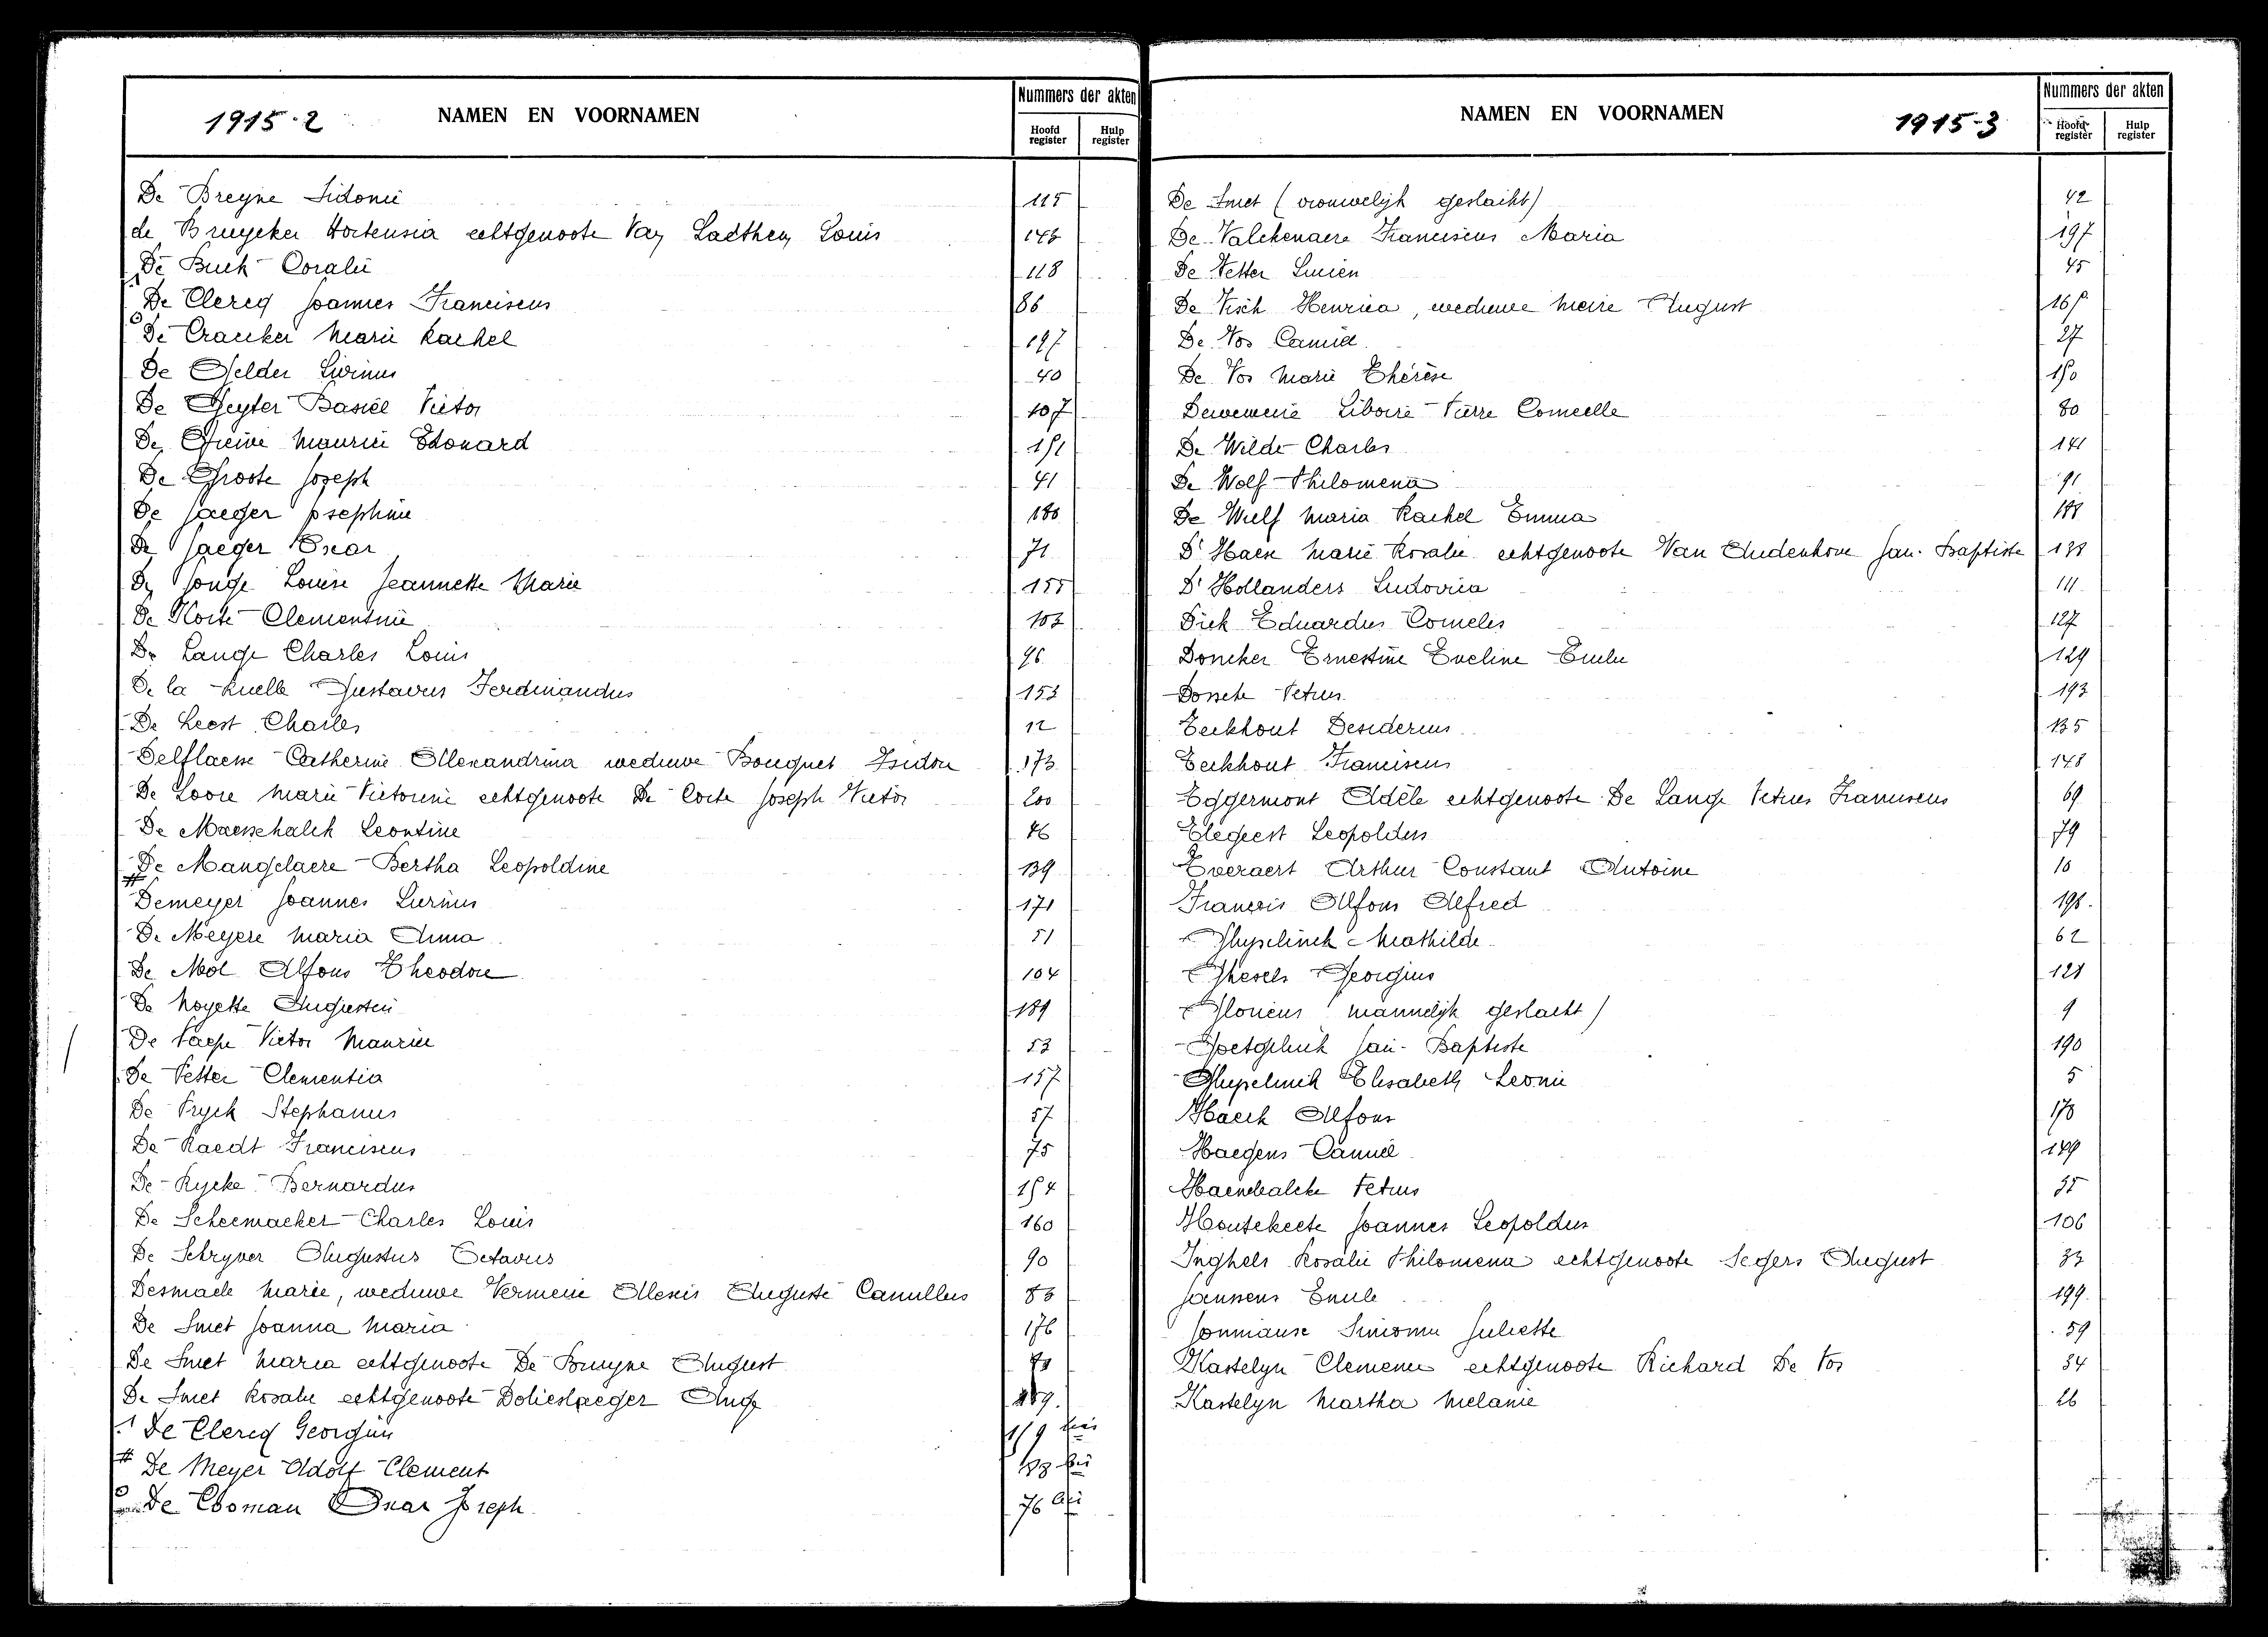 1915-2 NAMEN EN VOORNAMEN
Nummers der akten
Hoofd register
Hulp register
De Breyne Sidonie 115
de Bruycker Hortensia echtgenoote Van Laethem Louis 143
De Buck Coralie 118
De Clercq Joannes Franciscus 86
De Craecker Marie Rachel 197
De Gelder Livinus 40
De Geyter Basiel Victor 107
De Greive Maurice Edouard 151
De Groote Joseph 41
De Jaeger Josephine 180
De Jaeger Oscar 71
De Jonge Louise Jeannette Marie 155
De Korte Clementine 103
De Lange Charles Louis 96
De la Ruelle Gustavus Ferdinandus 153
De Leest Charles 12
Delflasse Catherine Allexandrina weduwe Bouquet Isidore 173
De Loore Marie Victorine echtgenoote De Corte Joseph Victor 200
De Maesschalck Leontine 46
De Mangelaere Bertha Leopoldine 139
Demeyer Joannes Livinus 171
De Meyere Maria Anna 51
De Mol Alfons Theodore 104
De Noyette Augustin 189
De Paepe Victor Maurice 53
De Petter Clementia 157
De Pryck Stephanus 57
De Raedt Franciscus 75
De Rycke Bernardus 154
De Scheemaeker Charles Louis 160
De Schryver Augustus Octavus 90
Desmaele Marie, weduwe Vermeire Allexis Auguste Camillus 83
De Smet Joanna Maria 176
De Smet Maria echtgenoote De Bruyne August
De Smet Rosalie echtgenoote Dolieslaeger Aug
De Clercq Georgius 119 bis
# De Meyer Adolf Clement
De Cooman Oscar Joseph 76 bis
NAMEN EN VOORNAMEN 1915-3
Nummers der akten
Hoofd register
Hulp register
De Smet (vrouwelijk geslacht) 42
De Valckenaere Franciscus Maria 197
De Vetter Lucien 45
De Visch Henrica, weduwe Meire August
De Vos Camiel 27
De Vos Marie Thérèse 150
Dewewerie Liboire Pierre Corneelle 80
De Wilde Charles 141
De Wolf Philomena 91
De Wulf Maria Rachel Emma 188
D'Haen Marie Rosalie echtgenoote Van Audenhove Jan Baptiste 138
D'Hollanders Ludovica 111
Dick Eduardus Cornelis 127
Doncker Ernestine Eveline Emilie 129
Dossche Petrus 193
Eeckhout Desiderius 135
Eeckhout Franciscus 148
Eggermont Adèle echtgenoote De Lange Petrus Franciscus 69
Elegeest Leopoldus 79
Everaert Arthur Constant Antoine 10
François Alfons Alfred 196
Ghyselinck Mathilde 62
Ghesels Georgius 128
Glorieus mannelijk geslacht) 9
Goetgeluck Jan Baptiste 190
Ghyselinck Elisabeth Leonie 5
Haeck Alfons 170
Haegens Camiel 149
Haenebalcke Petrus 35
Houtekeete Joannes Leopoldus 106
Inghels Rosalie Philomena echtgenoote Segers August 33
Janssens Emile 199
Jonmause Simonne Juliette 59
Kastelyn Clemence echtgenoote Richard De Vos 34
Kastelyn Martha Melanie 26